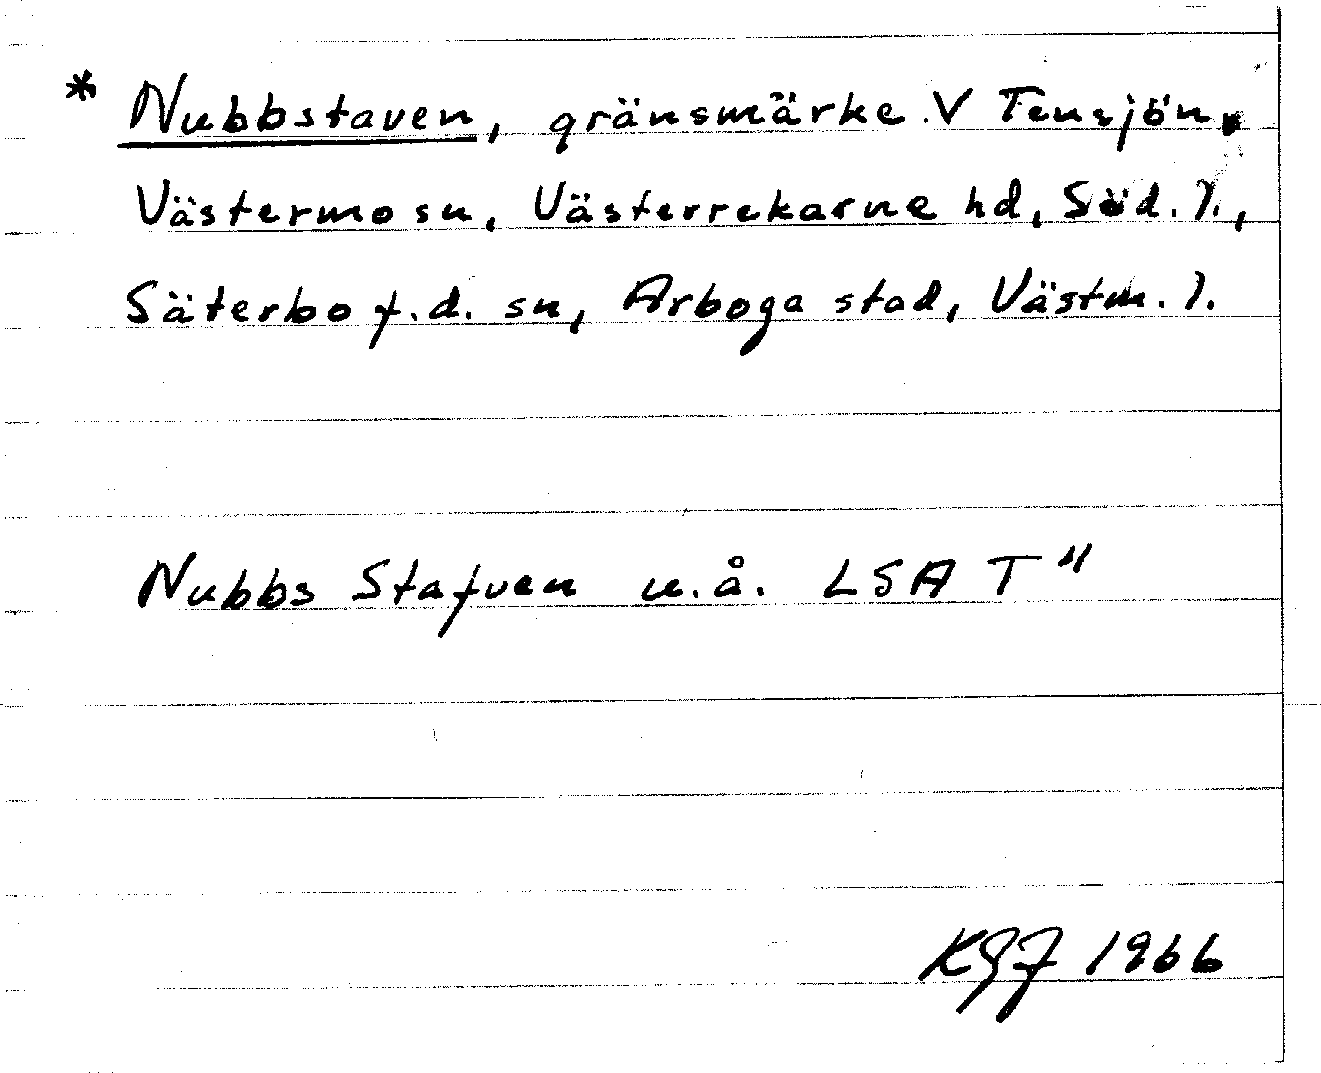 * Nubbstaven, gränsmärke V Tensjön,
Västermo sn, Västerrekarne hd, Söd. l.,
Säterbo f.d. sn, Arboga stad, Västm. l.
Nubbs Stafven u.å. LSA T"
KGF 1966